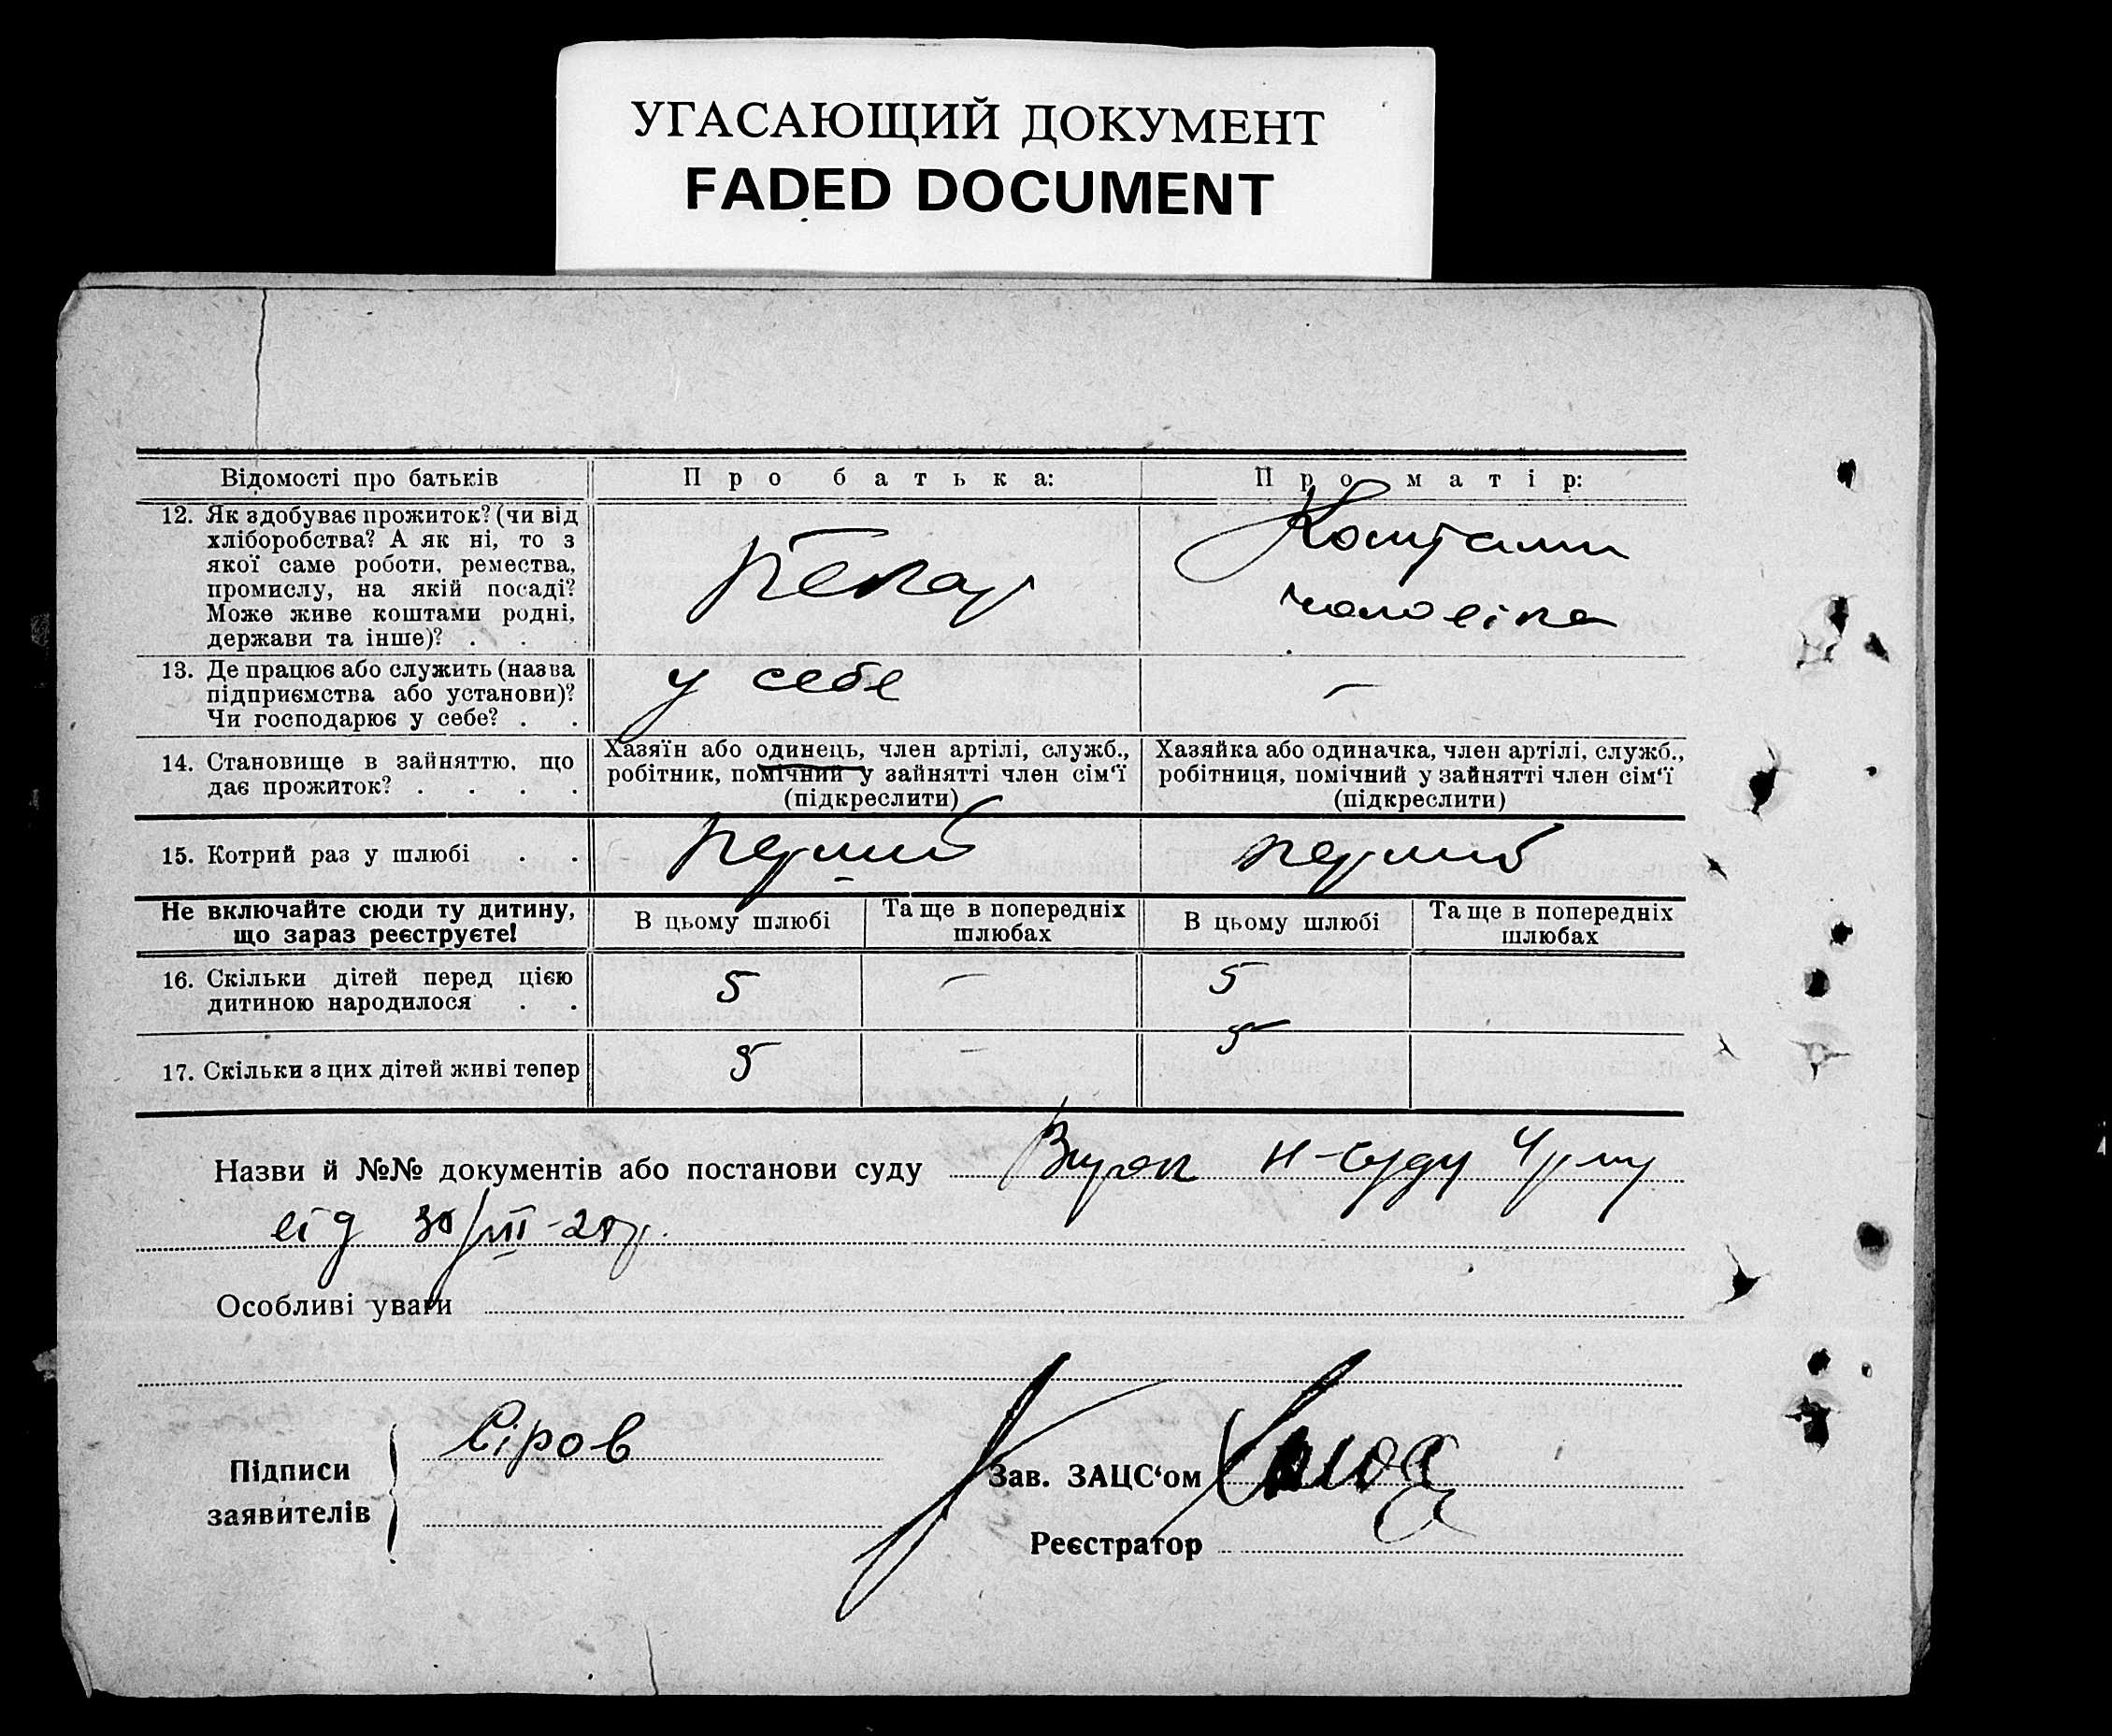 УГАСАЮЩИЙ ДОКУМЕНТ
FADED DOCUMENT
Відомості про батьків
Про батька:
Про матір:
12. Як здобуває прожиток? (чи від
хліборобства? А як ні, то з
якої саме роботи, ремества,
промислу, на якій посаді?
Може живе коштами родні,
держави та інше)? . . .
Пекар
Коштами
чоловіка
13. Де працює або служить (назва
підприємства або установи)?
Чи господарює у себе? . .
у себе
–
14. Становище в зайняттю, що
дає прожиток? . . . .
Хазяїн або одинець, член артілі, служб.,
робітник, помічний у зайнятті член сім'ї
(підкреслити)
Хазяйка або одиначка, член артілі, служб.,
робітниця, помічний у зайнятті член сім'ї
(підкреслити)
15. Котрий раз у шлюбі . .
перший
перший
Не включайте сюди ту дитину,
що зараз реєструєте!
В цьому шлюбі
Та ще в попередніх
шлюбах
В цьому шлюбі
Та ще в попередніх
шлюбах
16. Скільки дітей перед цією
дитиною народилося . .
5
–
5
17. Скільки з цих дітей живі тепер
5
–
5
Назви й №№ документів або постанови суду
Н-Суду
від
Особливі уваги
Підписи
заявителів
Сіров
Зав. ЗАЦС'ом
Реєстратор